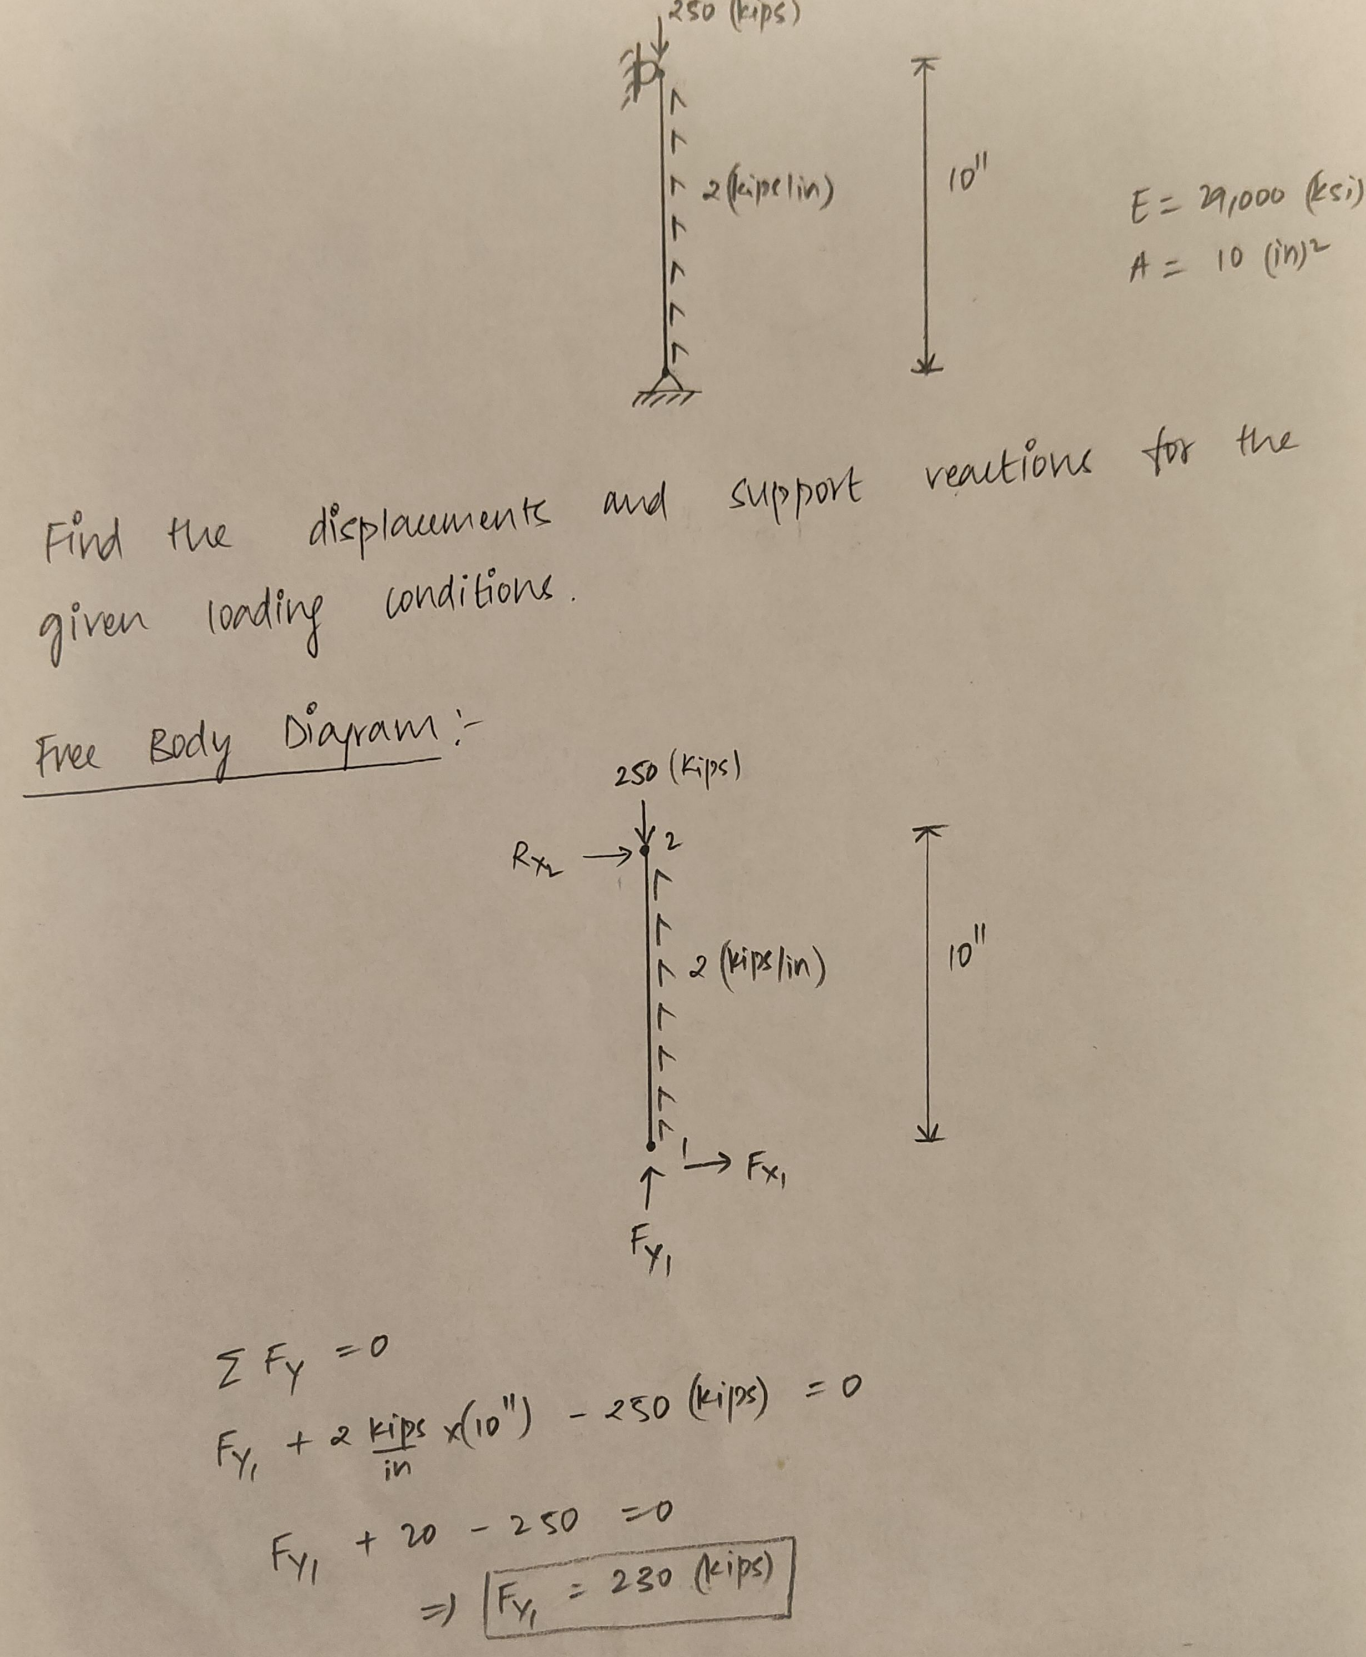 250 (kips)
2 (kips/in)
10"
E = 29,000 (ksi)
A = 10 (in)²
Find the displacements and support reactions for the
given loading conditions.
Free Body Diagram :-
250 (kips)
Rx₂
2
2 (kips/in)
10"
1
Fx₁
Fy₁
Σ Fy = 0
Fy₁ + 2 kips/in x(10") - 250 (kips) = 0
Fy₁ + 20 - 250 = 0
⇒ Fy₁ = 230 (kips)